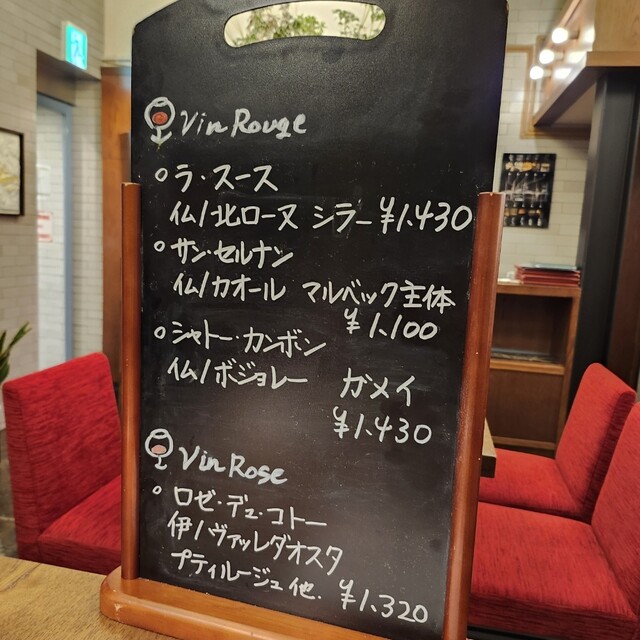 Vin Rouge
ラ・スース
仏/北ローヌ シラー ¥1.430
サン・セルナン
仏/カオール マルベック主体
¥1.100
シャトー・カンボン
仏/ボジョレー ガメイ
¥1.430
Vin Rose
ロゼ・デュ・コトー
伊/ヴァッレダオスタ
プティルージュ他. ¥1.320